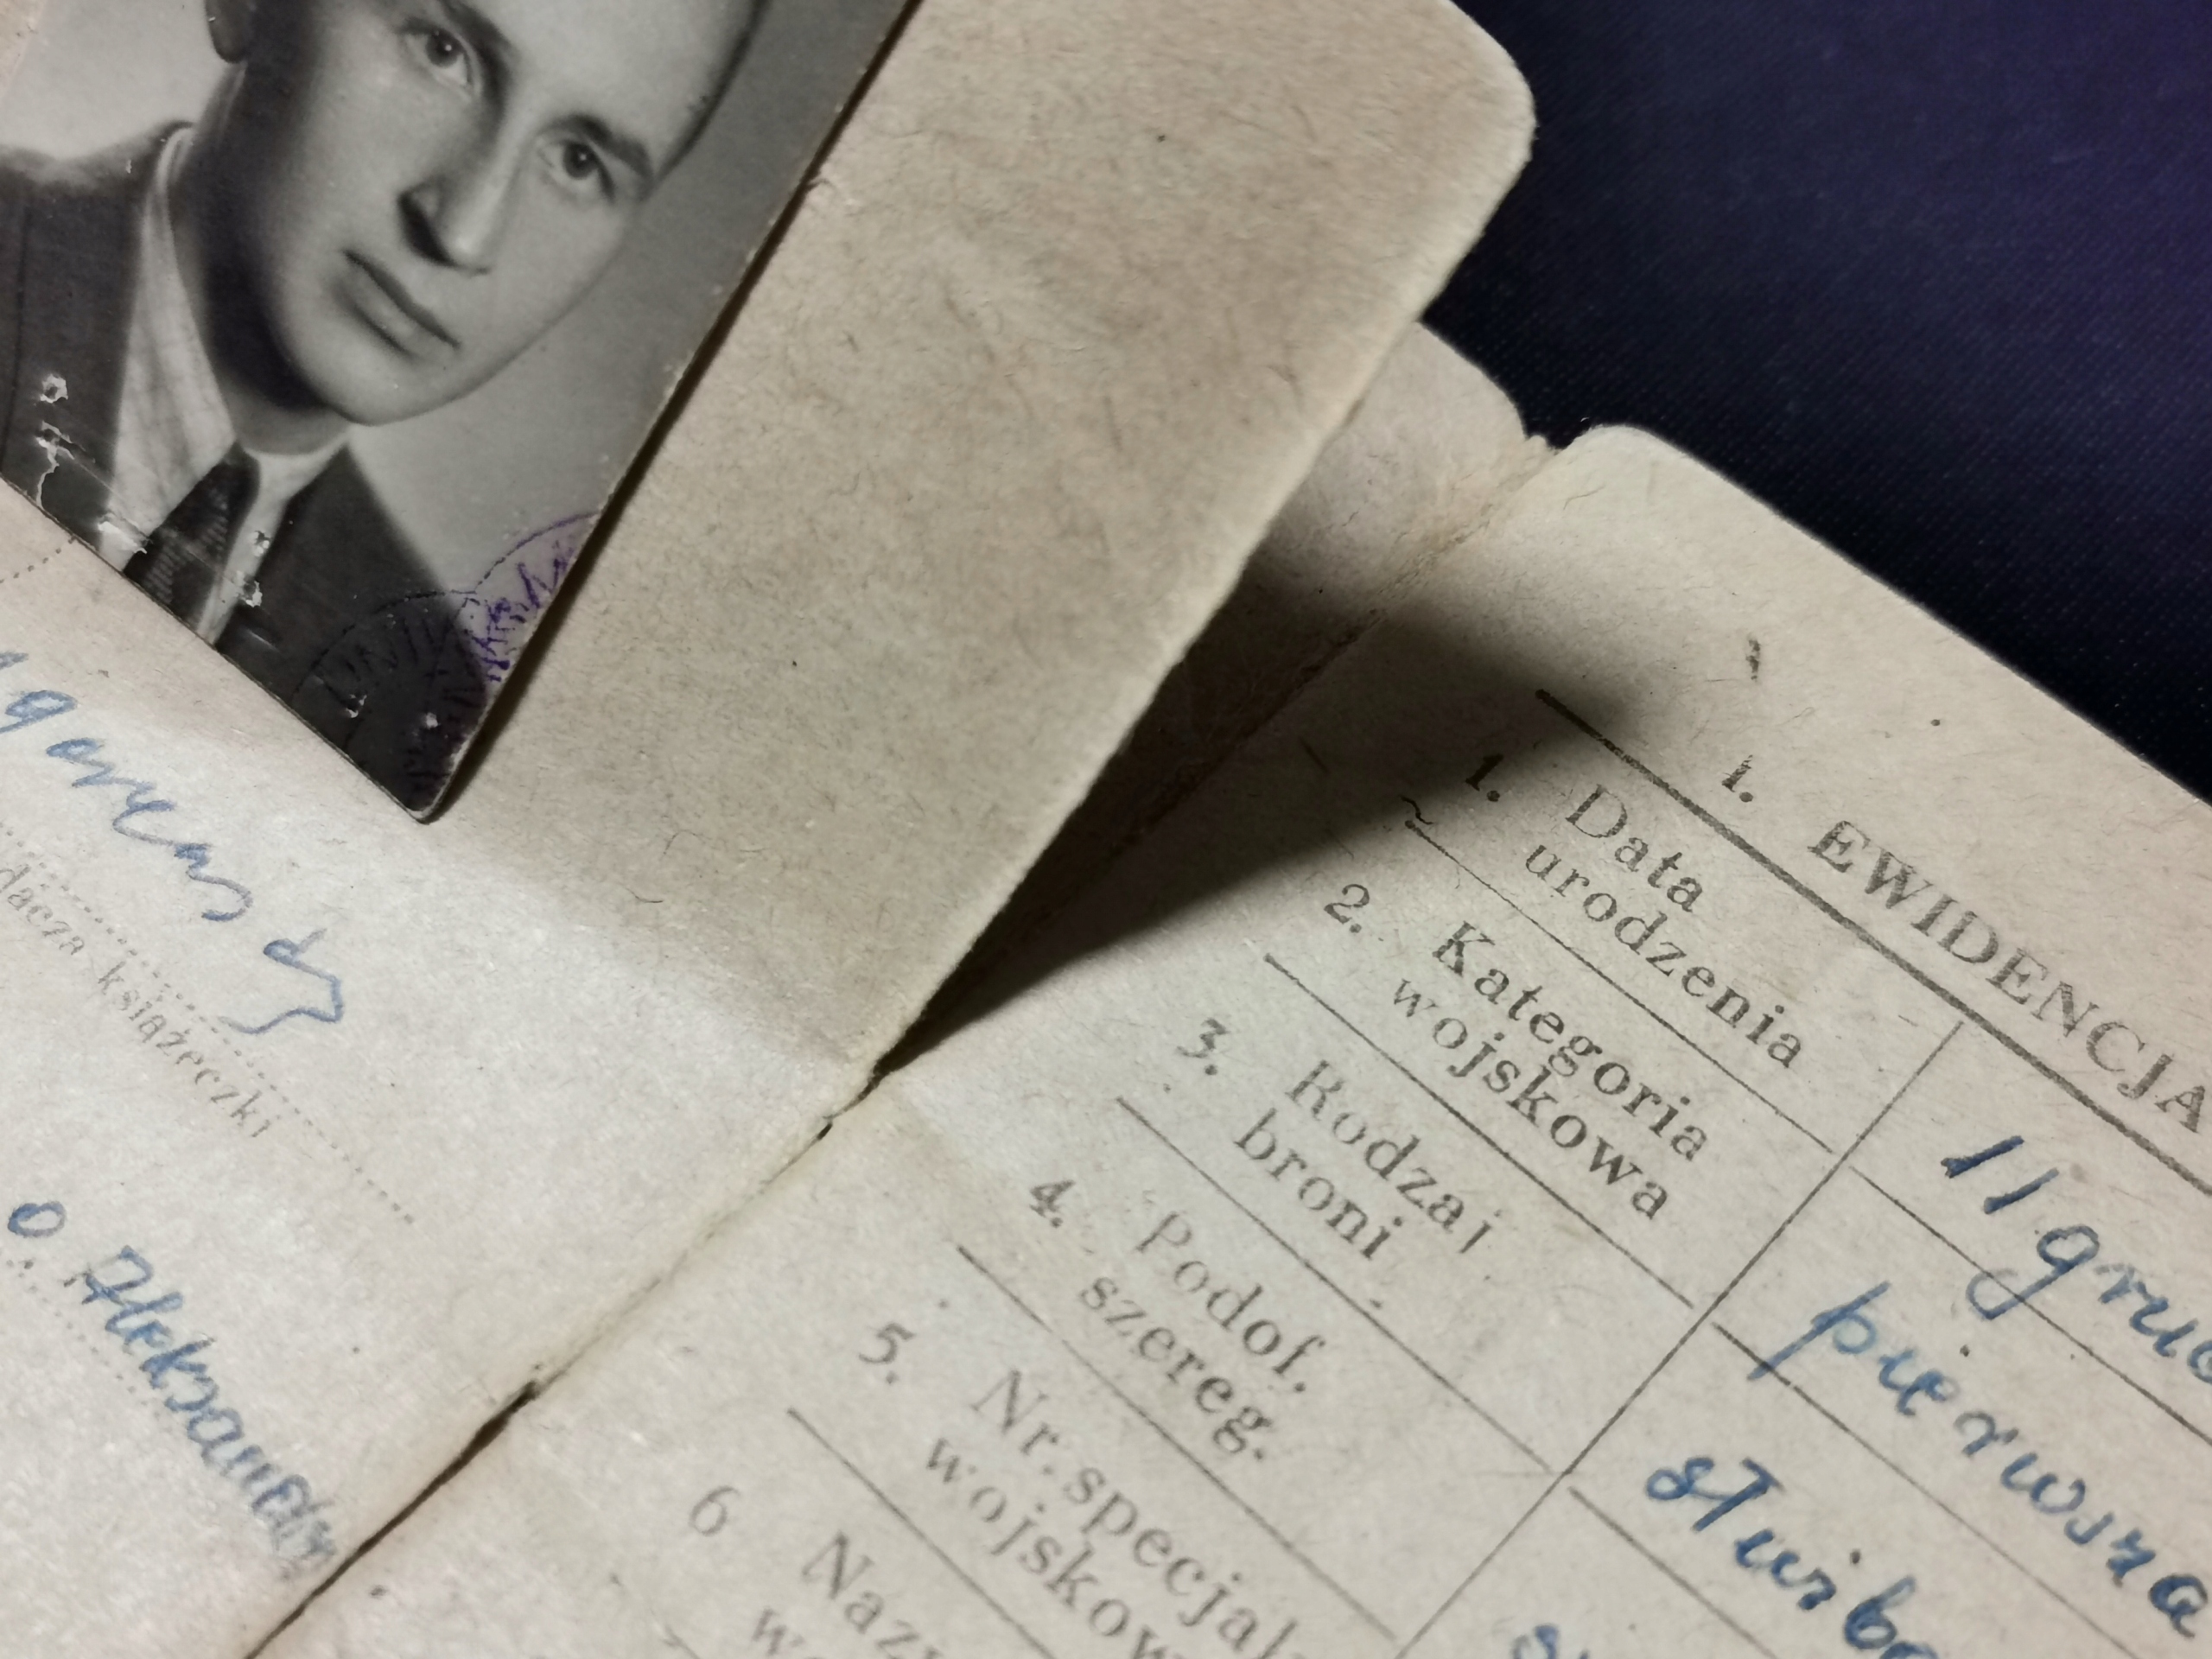 dacza książeczki
o. Aleksander
1. EWIDENCJA
1. Data
urodzenia
11 gru
2. Kategoria
wojskowa
pierwsza
3. Rodzaj
broni
służba
4. Podof.
szereg.
5. Nr. specjal
wojskow
6 Nazw
w